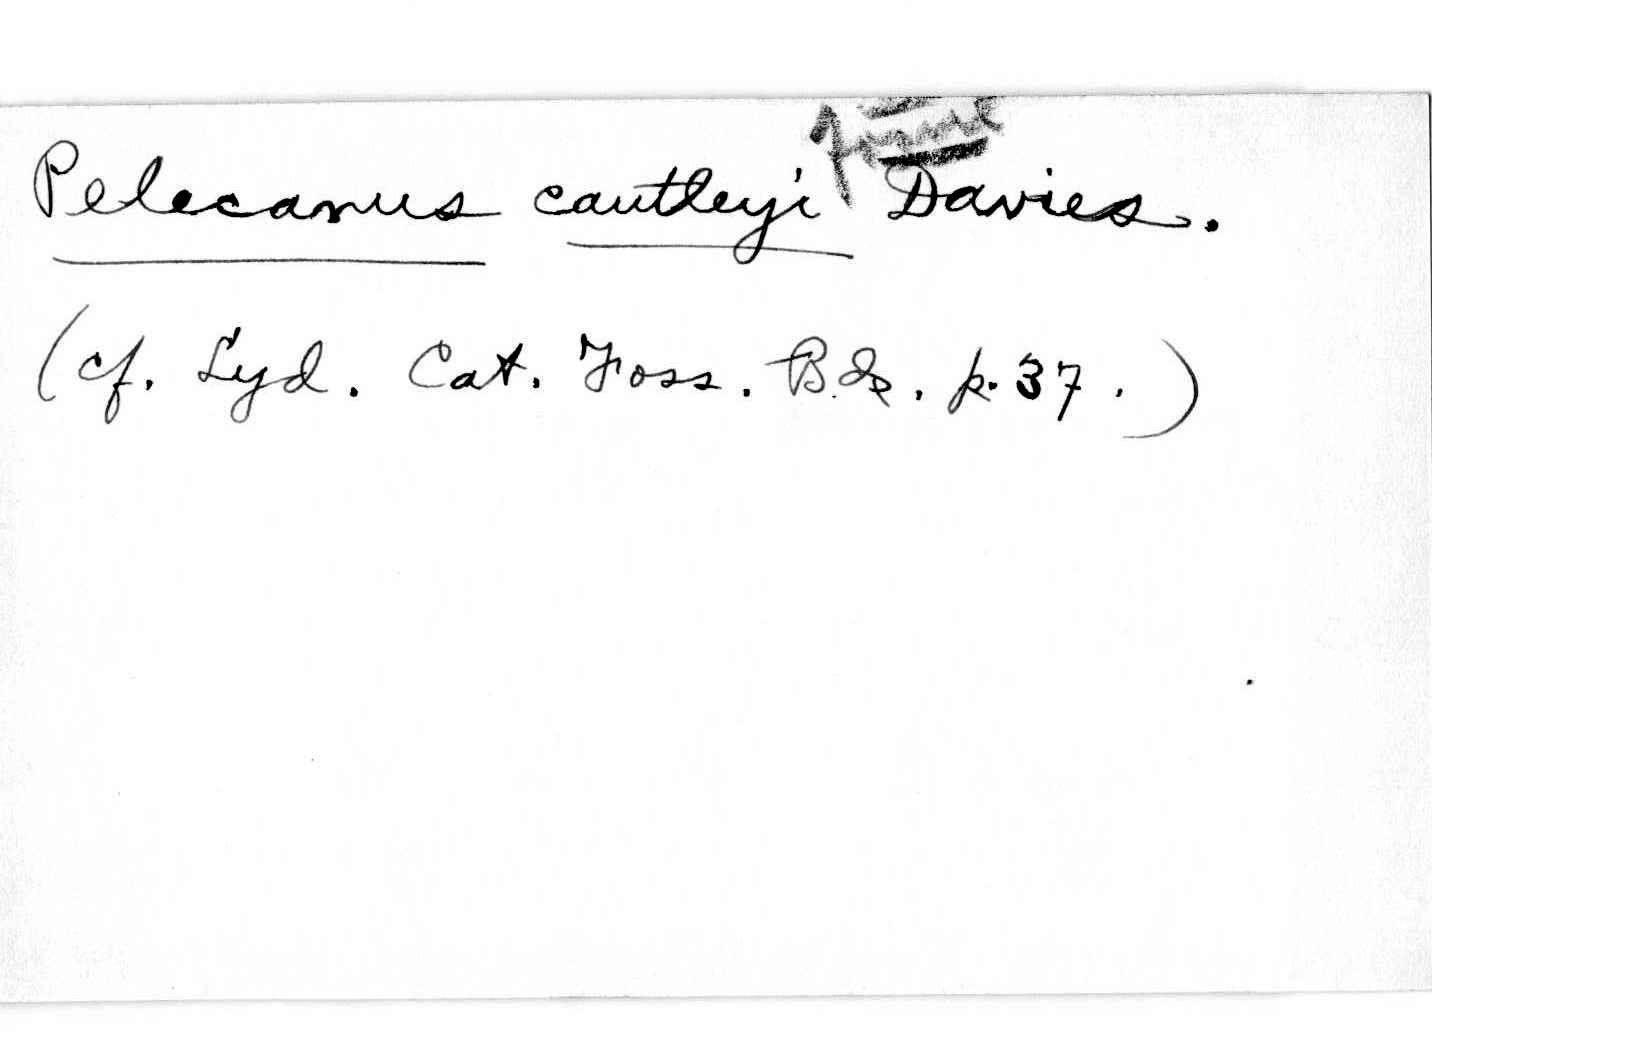 Pelecanus cautleyi Davies.
(cf. Lyd. Cat. Foss. Bds. p. 37.)